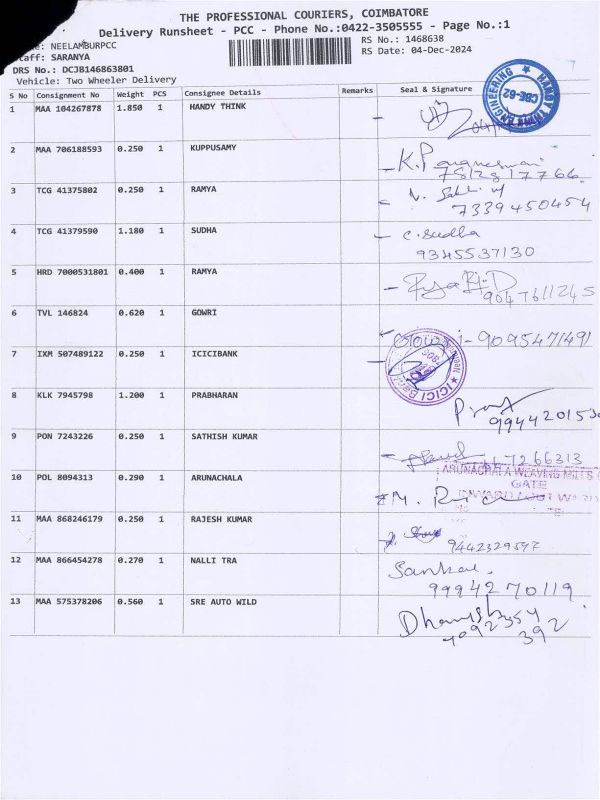 THE PROFESSIONAL COURIERS, COIMBATORE
Delivery Runsheet - PCC - Phone No.:0422-3505555 - Page No.:1
NEELAMBURPCC
RS No.: 1468638
Staff: SARANYA
RS Date: 04-Dec-2024
DRS No.: DCJB146863801
Vehicle: Two Wheeler Delivery
S No Consignment No Weight PCS Consignee Details Remarks Seal & Signature
HANDY ENGINEERING CBE-62
1 MAA 104267878 1.850 1 HANDY THINK
2 MAA 706188593 0.250 1 KUPPUSAMY
3 TCG 41375802 0.250 1 RAMYA
7339450454
4 TCG 41379590 1.180 1 SUDHA C. Sudha
9345537130
5 HRD 7000531801 0.400 1 RAMYA
9047611245
6 TVL 146824 0.620 1 GOWRI Gowri - 9095471491
7 IXM 507489122 0.250 1 ICICIBANK
ICICI Bank
8 KLK 7945798 1.200 1 PRABHARAN
9 PON 7243226 0.250 1 SATHISH KUMAR
ARUNACHALA WEAVING MILLS
GATE
10 POL 8094313 0.290 1 ARUNACHALA
11 MAA 868246179 0.250 1 RAJESH KUMAR
12 MAA 866454278 0.270 1 NALLI TRA
9994270119
13 MAA 575378206 0.560 1 SRE AUTO WILD
392